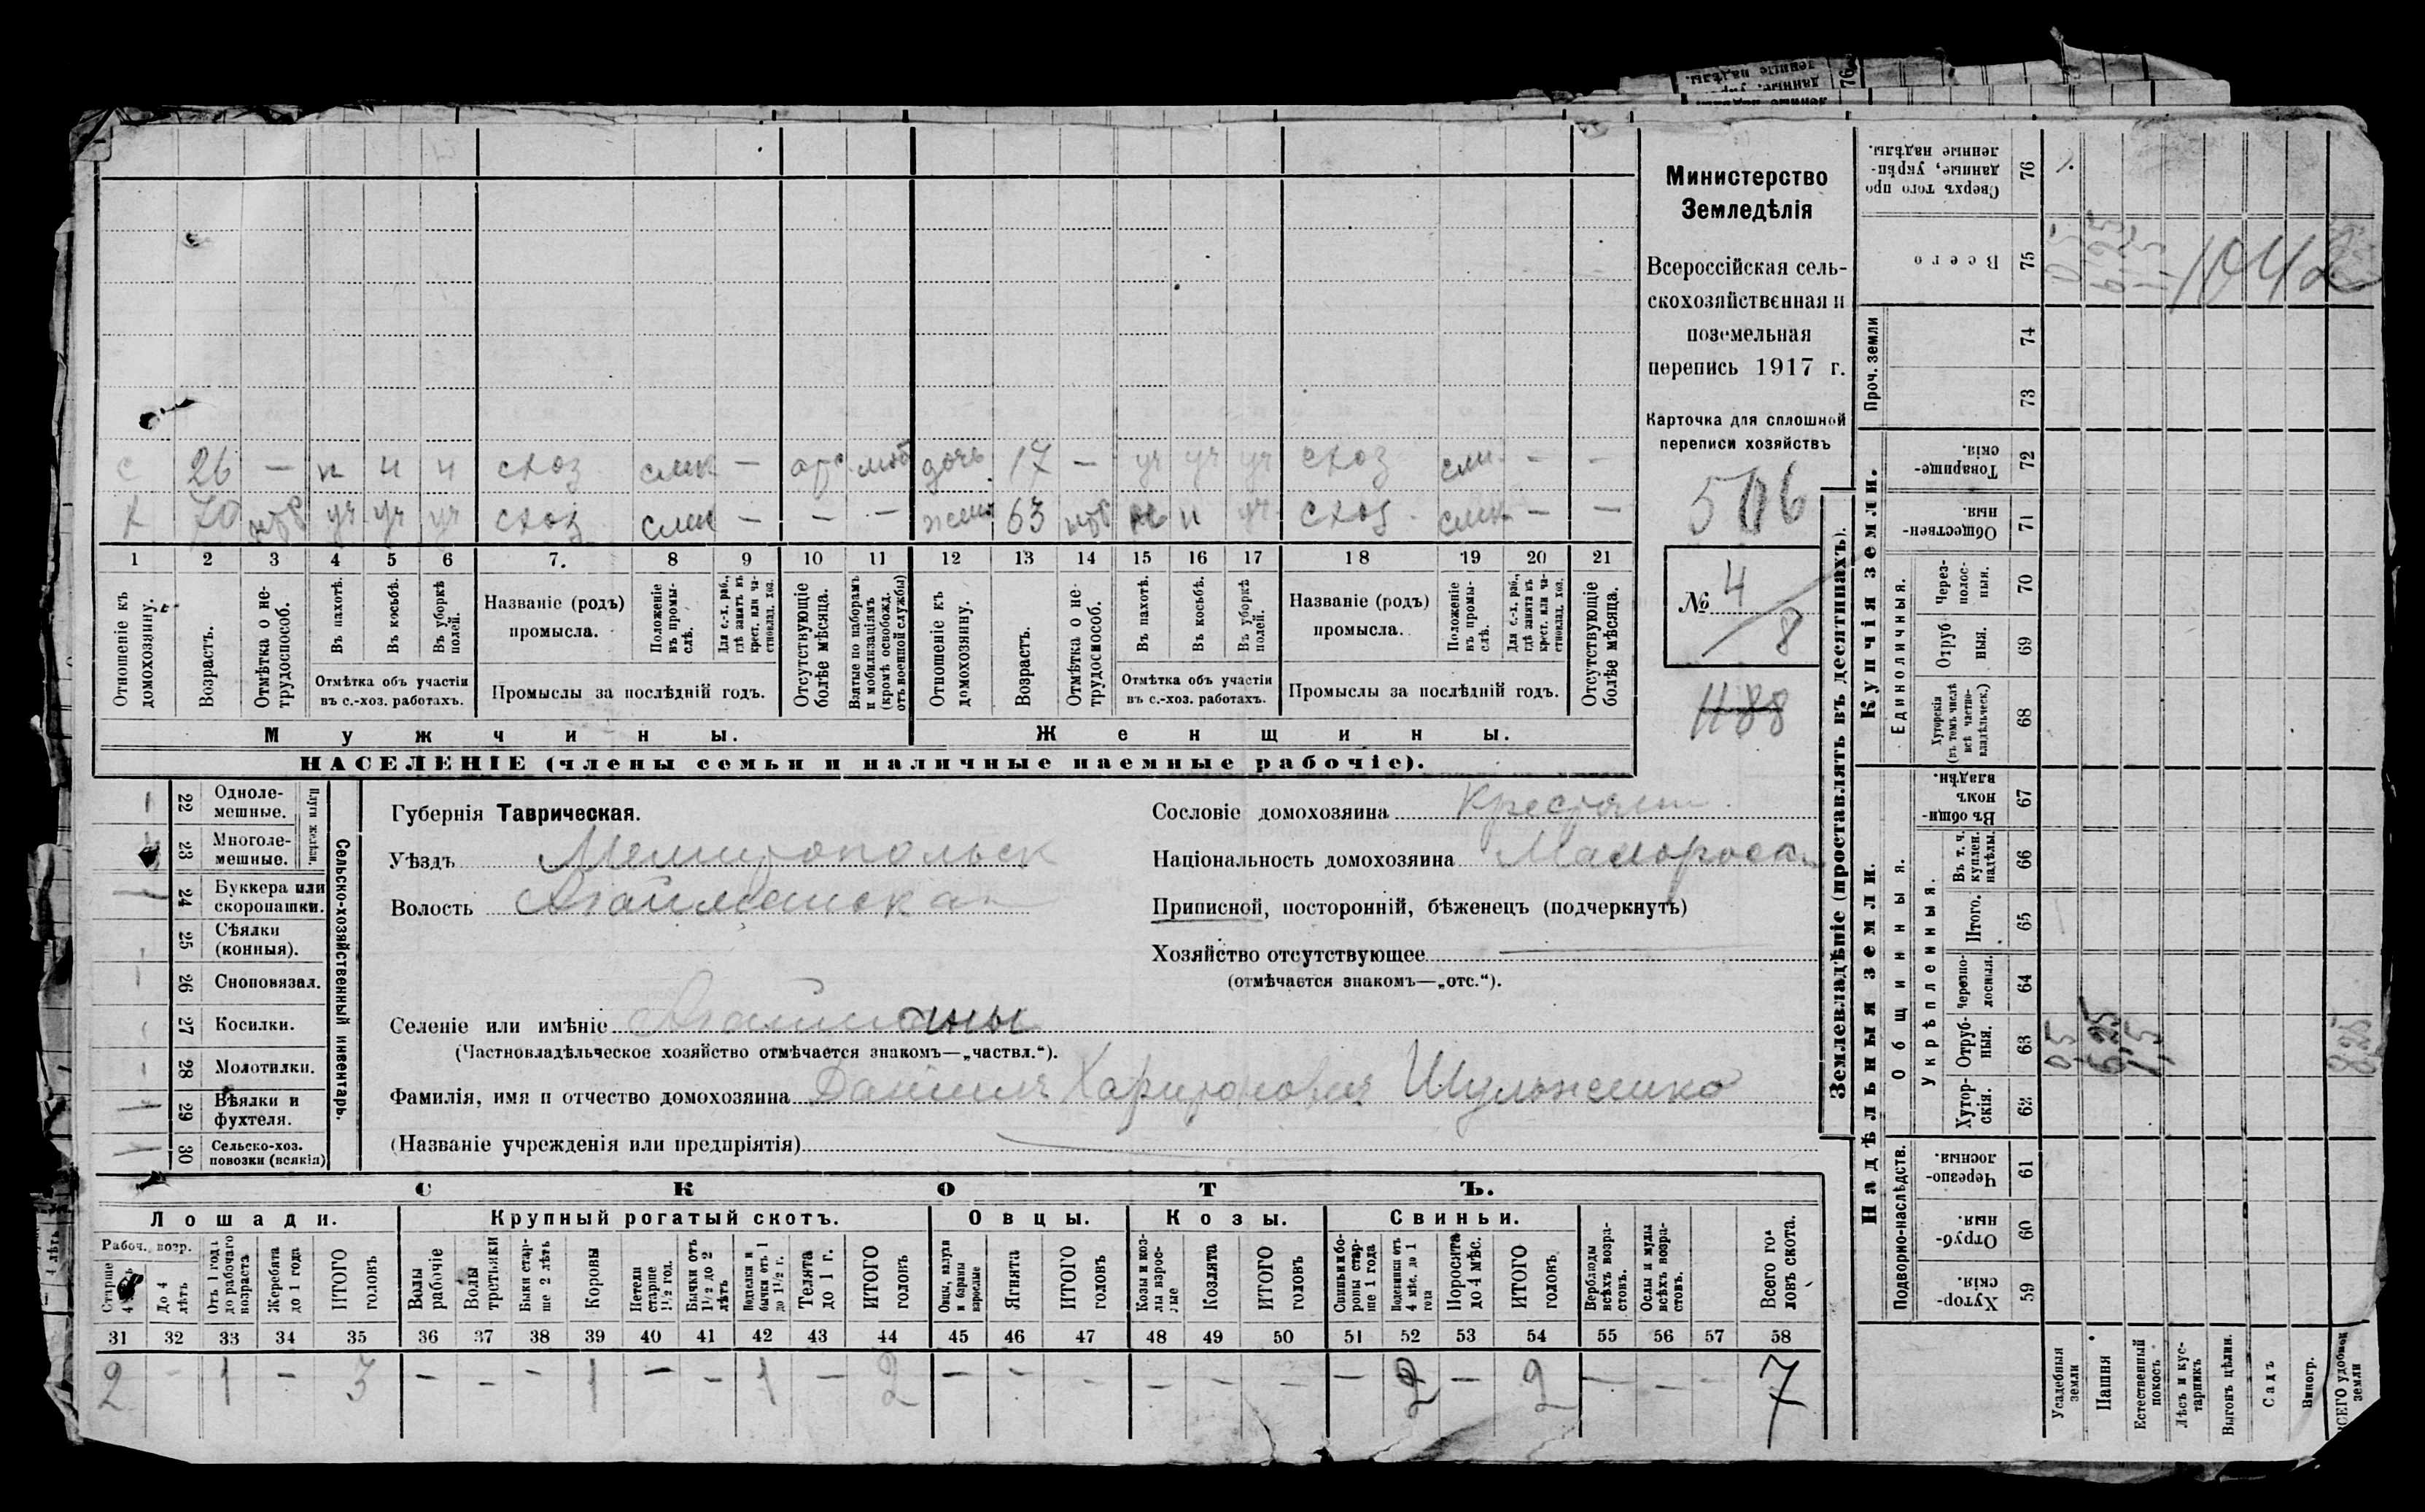 Министерство
Земледѣлія
Всероссійская сель-
скохозяйственная и
поземельная
перепись 1917 г.
Карточка для сплошной
переписи хозяйствъ
506
№ 4/8
1188
с 26 — н н н схоз — дочь 17 — уч уч уч схоз — —
х 70 нтр уч уч уч схоз — — — жена 63 нтр н уч схоз — —
1 2 3 4 5 6 7. 8 9 10 11 12 13 14 15 16 17 18 19 20 21
Отношеніе къ домохозяину.
Возрастъ.
Отмѣтка о не-трудоспособ.
Въ пахотѣ.
Въ косьбѣ.
Въ уборкѣ полей.
Отмѣтка объ участіи въ с.-хоз. работахъ.
Названіе (родъ) промысла.
Положеніе въ промы-слѣ.
Для с.-х. раб., гдѣ занятъ въ крест. или ча-стновлад. хоз.
Промыслы за послѣдній годъ.
Отсутствующіе болѣе мѣсяца.
Взятые по наборамъ и мобилизаціямъ (кромѣ освобожд. отъ военной службы)
Отношеніе къ домохозяину.
Возрастъ.
Отмѣтка о не-трудоспособ.
Въ пахотѣ.
Въ косьбѣ.
Въ уборкѣ полей.
Отмѣтка объ участіи въ с.-хоз. работахъ.
Названіе (родъ) промысла.
Положеніе въ промы-слѣ.
Для с.-х. раб., гдѣ занята въ крест. или ча-стновлад. хоз.
Промыслы за послѣдній годъ.
Отсутствующіе болѣе мѣсяца.
Мужчины. Женщины.
НАСЕЛЕНІЕ (члены семьи и наличные наемные рабочіе).
Сельско-хозяйственный инвентарь.
Плуги желѣзн.
22 Одноле-мешные.
23 Многоле-мешные.
24 Буккера или скоропашки.
25 Сѣялки (конныя).
26 Сноповязал.
27 Косилки.
28 Молотилки.
29 Вѣялки и фухтеля.
30 Сельско-хоз. повозки (всякія)
Губернія Таврическая.
Уѣздъ Мелитопольск
Волость Агайманская
Селеніе или имѣніе Агайманы
(Частновладѣльческое хозяйство отмѣчается знакомъ—„частвл.“).
Фамилія, имя и отчество домохозяина Даніилъ Харитоновъ Шульженко
(Названіе учрежденія или предпріятія)
Сословіе домохозяина Крестьян
Національность домохозяина Малоросс
Приписной, посторонній, бѣженецъ (подчеркнуть)
Хозяйство отсутствующее
(отмѣчается знакомъ—„отс.“).
СКОТЪ.
Лошади. Крупный рогатый скотъ. Овцы. Козы. Свиньи.
Рабоч. возр.
Старше 4 лѣтъ
До 4 лѣтъ
Отъ 1 года до рабочаго возраста
Жеребята до 1 года
ИТОГО головъ
Волы рабочіе
Волы третьяки
Быки стар-ше 2 лѣтъ
Коровы
Нетели старше 1½ год.
Бычки отъ 1½ до 2 лѣтъ
Водѣлки и бычки отъ 1 до 1½ г.
Телята до 1 г.
ИТОГО головъ
Овцы, валухи и бараны взрослые
Ягнята
ИТОГО головъ
Козы и коз-лы взрос-лые
Козлята
ИТОГО головъ
Свиньи и бо-ровы стар-ше 1 года
Подсвинки отъ 4 мѣс. до 1 года
Поросята до 4 мѣс.
ИТОГО головъ
Верблюды всѣхъ возра-стовъ.
Ослы и мулы всѣхъ возра-стовъ.
Всего го-ловъ скота.
31 32 33 34 35 36 37 38 39 40 41 42 43 44 45 46 47 48 49 50 51 52 53 54 55 56 57 58
2 — 1 — 3 — — — 1 — — 1 — 2 — — — — — — — 2 — 2 — — — 7
Землевладѣніе (проставлять въ десятинахъ).
Купчія земли.
Надѣльныя земли.
Сверхъ того про-данные, укрѣп-ленные надѣлы. 76
Всего 75 0,5 6,25 1,5 8,25
1042
Проч. земли 74 73
Товарище-скія. 72
Обществен-ныя. 71
Единоличныя.
Через-полос-ныя. 70
Отруб-ныя. 69
Хуторскія (въ томъ числѣ всѣ частно-владѣльческ.) 68
Общинныя.
Въ общин-номъ владѣн. 67
Укрѣпленныя.
Въ т. ч. куплен. надѣлы 66
Итого. 65
Черезпо-лосныя. 64
Отруб-ныя. 63 0,5 6,25 1,5 8,25
Хутор-скія. 62
Подворно-наслѣдств.
Черезпо-лосныя. 61
Отруб-ныя 60
Хутор-скія 59
Усадебныя земли
Пашня
Естественный покосъ
Лѣсъ и кус-тарникъ
Выгонъ цѣлин.
Садъ
Виногр.
ВСЕГО удобной земли